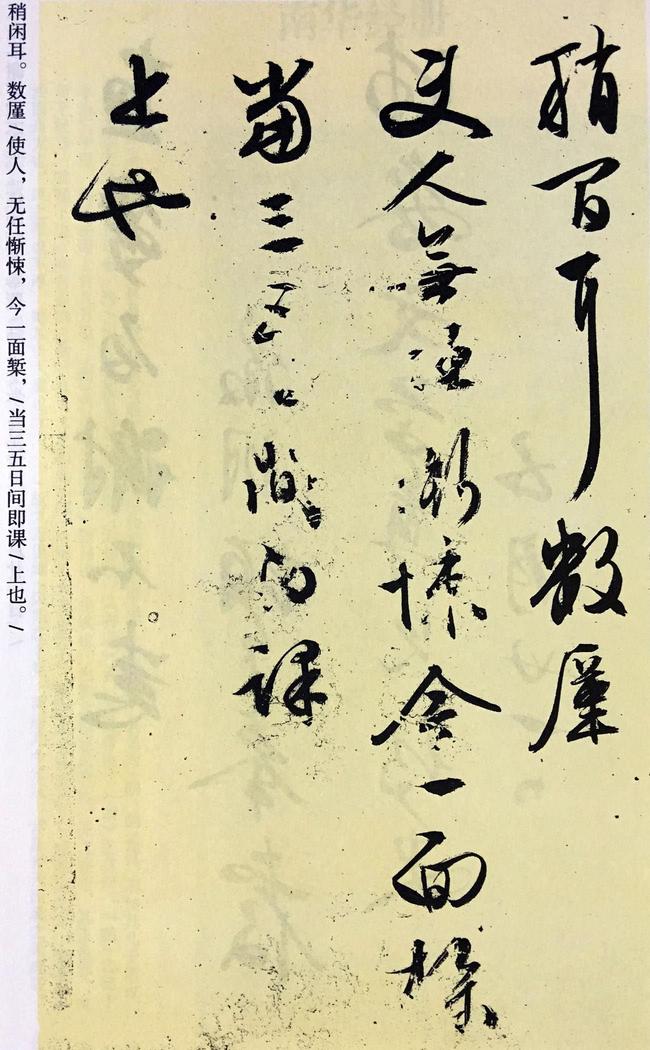 稍閒耳數厪
使人無任慚悚今一面槧
當三五日間即課
上也
稍闲耳。数厪/使人，无任惭悚，今一面椠，/当三五日间即课/上也。/